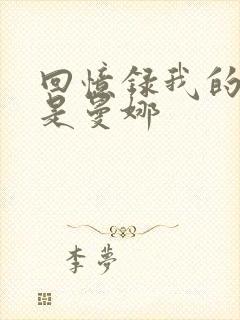 回憶録我的
是曼娜
李夢